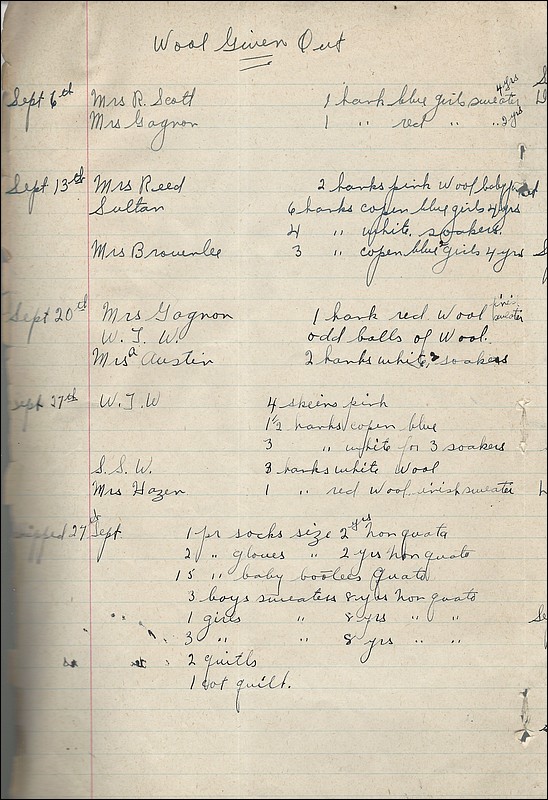 Wool Given Out
4 yrs
Sept 6th Mrs R. Scott 1 hank blue girls sweater
Mrs Gagnon 1 " red " " 2 yrs
Sept 13th Mrs Reed 2 hanks pink Wool baby
Sultan 6 hanks copen blue girls 4 yrs
4 " white soakers
Mrs Brownlee 3 " copen blue girls 4 yrs
Sept 20th Mrs Gagnon 1 hank red Wool sweater
W. J. W. odd balls of Wool.
Mrs Austin 2 hanks white, soakers
Sept 27th W. J. W 4 skeins pink
1 1/2 hanks copen blue
3 " white for 3 soakers
S. S. W. 3 hanks white Wool
Mrs Hazen 1 " red Wool finish sweater
27 Sept. 1 pr socks size 2 yrs non quota
2 " gloves " 2 yrs non quota
15 " baby bootees Quota
3 boys sweaters 8 yrs non quota
1 girls " 8 yrs " "
3 " " 8 yrs " "
2 quilts
1 cot quilt.